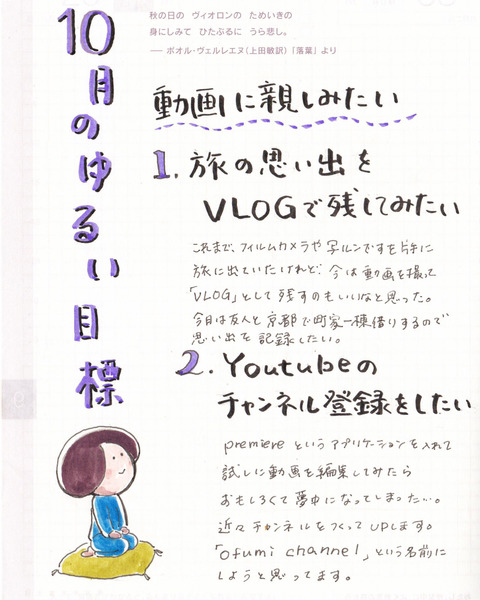 秋の日の ヴィオロンの ためいきの
身にしみて ひたぶるに うら悲し。
── ポオル・ヴェルレエヌ(上田敏訳)「落葉」より
10月のゆるい目標
動画に親しみたい
1. 旅の思い出を
VLOGで残してみたい
これまで、フィルムカメラや写ルンですを片手に
旅に出ていたけれど、今は動画を撮って
「VLOG」として残すのもいいなと思った。
今月は友人と京都で町家一棟借りするので
思い出を記録したい。
2. Youtubeの
チャンネル登録をしたい
premiere というアプリケーションを入れて
試しに動画を編集してみたら
おもしろくて夢中になってしまった…。
近々チャンネルをつくってUPします。
「ofumi channel」という名前に
しようと思ってます。